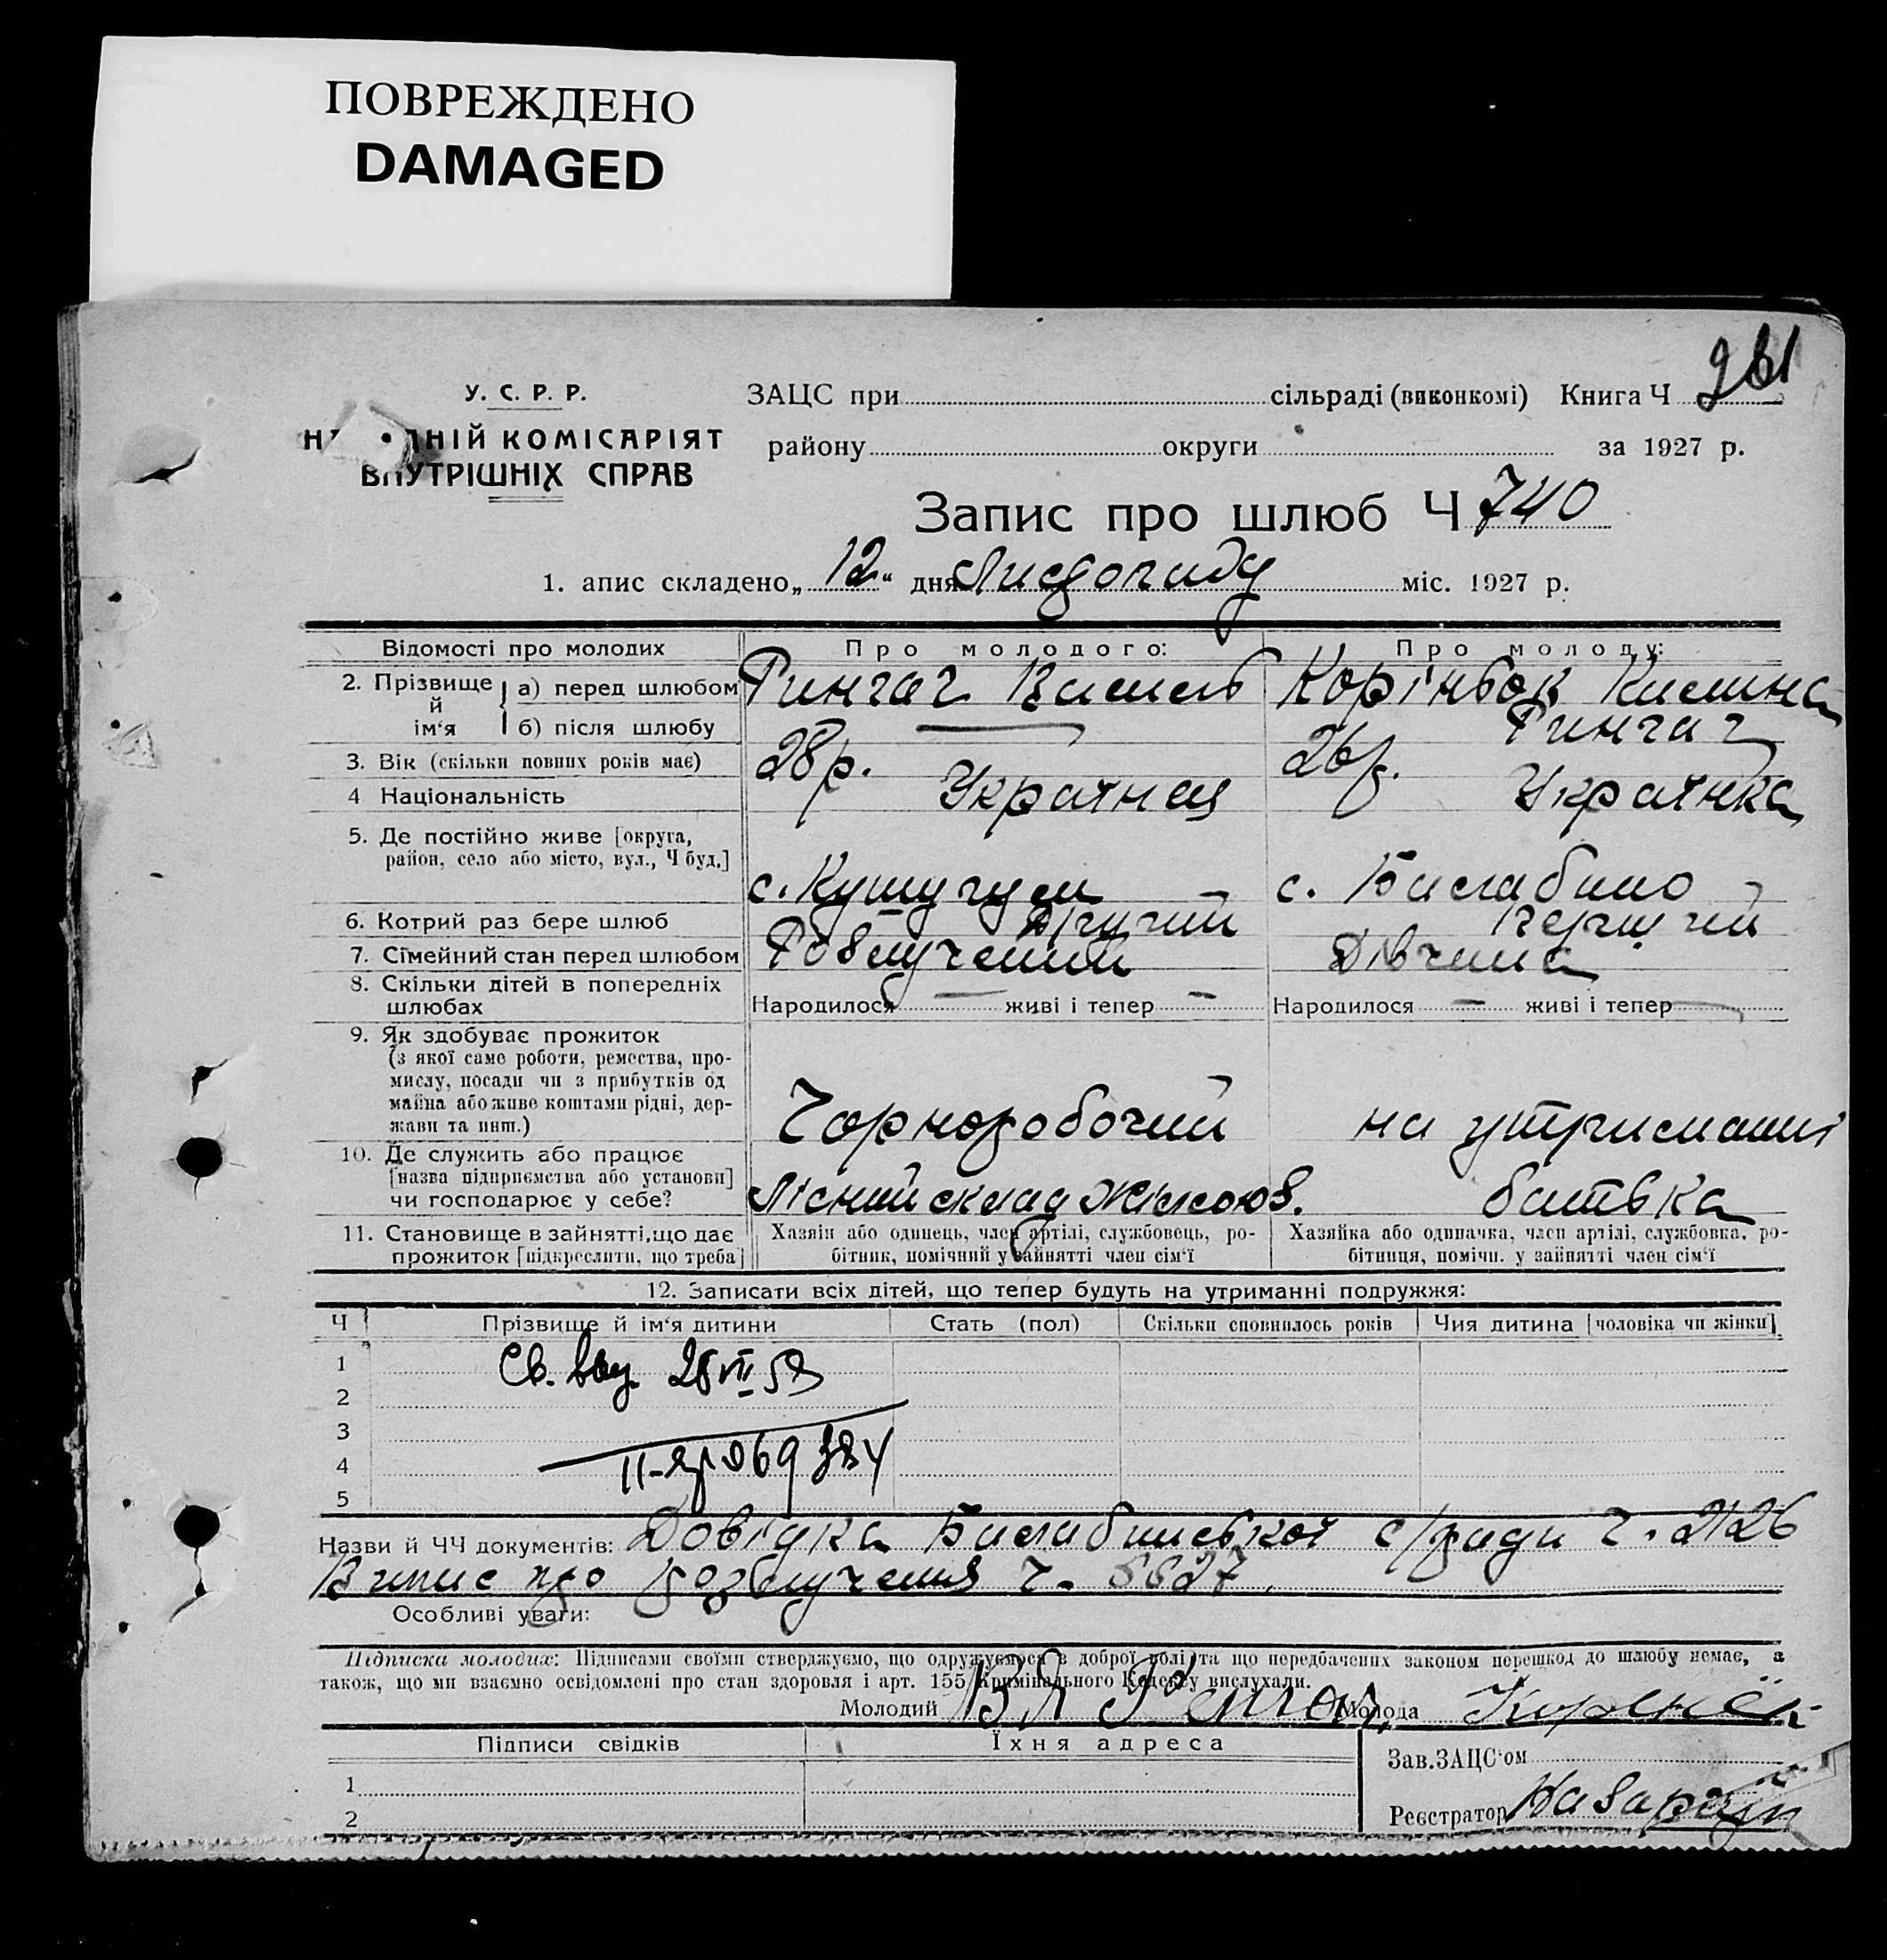 ПОВРЕЖДЕНО
DAMAGED
У. С. Р. Р.
НІЙ КОМІСАРІЯТ
ВНУТРІШНІХ СПРАВ
ЗАЦС при сільраді (виконкомі) Книга Ч
району округи за 1927 р.
Запис про шлюб Ч 740
1. апис складено „ 12 “ дня Листопаду міс. 1927 р.
Відомості про молодих
Про молодого:
Про молоду:
2. Прізвище й ім‘я
а) перед шлюбом
Рингач Василь
б) після шлюбу
Рингач
3. Вік (скільки повних років має)
28 р.
26 р.
4 Національність
Українець
Українка
5. Де постійно живе [округа,
район, село або місто, вул., Ч буд.]
с. Кушугум
с. Балабино
6. Котрий раз бере шлюб
Другий
Перший
7. Сімейний стан перед шлюбом
Розлучений
Дівчина
8. Скільки дітей в попередніх
шлюбах
Народилося — живі і тепер —
Народилося — живі і тепер —
9. Як здобуває прожиток
(з якої саме роботи, ремества, про-
мислу, посади чи з прибутків од
майна або живе коштами рідні, дер-
жави та инш.)
Чорноробочий
на утриманні
10. Де служить або працює
[назва підприємства або установи]
чи господарює у себе?
Лісний склад
батька
11. Становище в зайнятті, що дає
прожиток [підкреслити, що треба]
Хазяїн або одинець, член артілі, службовець, ро-
бітник, помічний у зайнятті член сім‘ї
Хазяйка або одиначка, член артілі, службовка, ро-
бітниця, помічн. у зайнятті член сім‘ї
12. Записати всіх дітей, що тепер будуть на утриманні подружжя:
Ч
Прізвище й ім‘я дитини
Стать (пол)
Скільки сповнилось років
Чия дитина [чоловіка чи жінки]
1
2
3
4
5
Назви й ЧЧ документів: Довідка Балабинської с/ради ч. 2126
Випис про розлучення ч. 5527
Особливі уваги:
Підписка молодих: Підписами своїми стверджуємо, що одружуємося з доброї волі та що передбачених законом перешкод до шлюбу немає, а
також, що ми взаємно освідомлені про стан здоровля і арт. 155 Кримінального Кодексу вислухали.
Молодий
Молода
Підписи свідків
Їхня адреса
Зав. ЗАЦС‘ом
1
2
Реєстратор